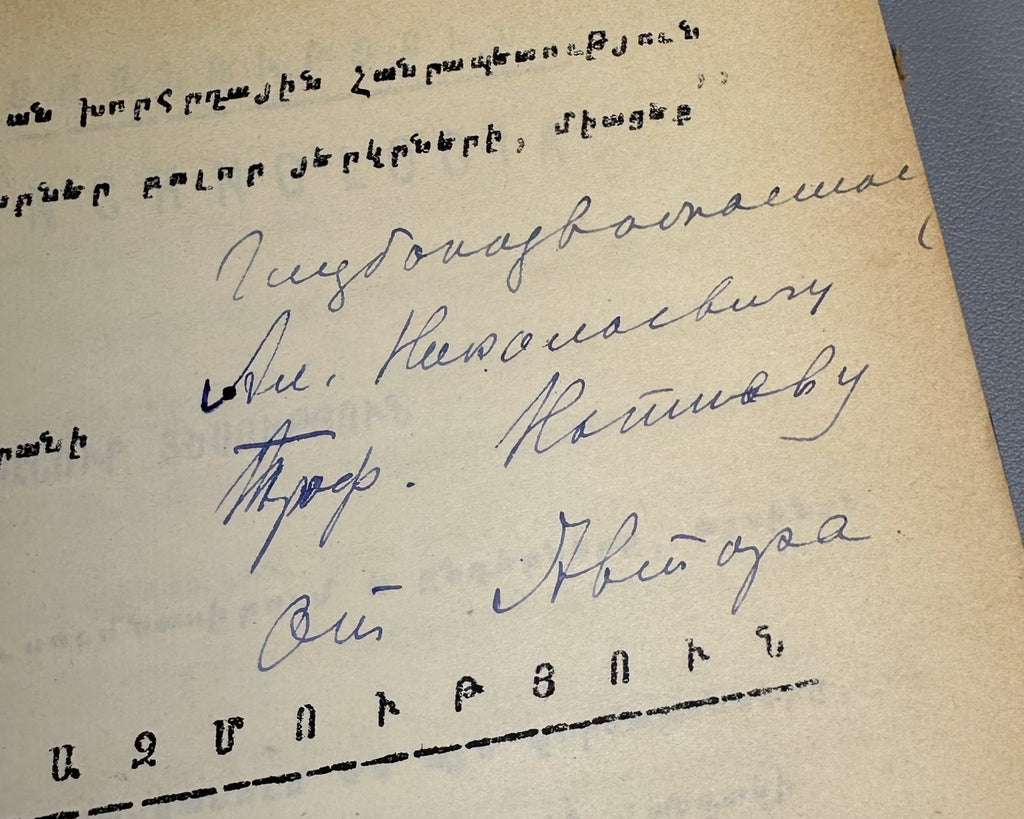 ան խորհրդային Հանրապետություն
րներ բոլոր յերկրների, միացեք''
Глубокоуважаемо
Ал. Николаевичу
Проф.
րանի
От Автора
ԱԶՄՈՒԹՅՈՒՆ